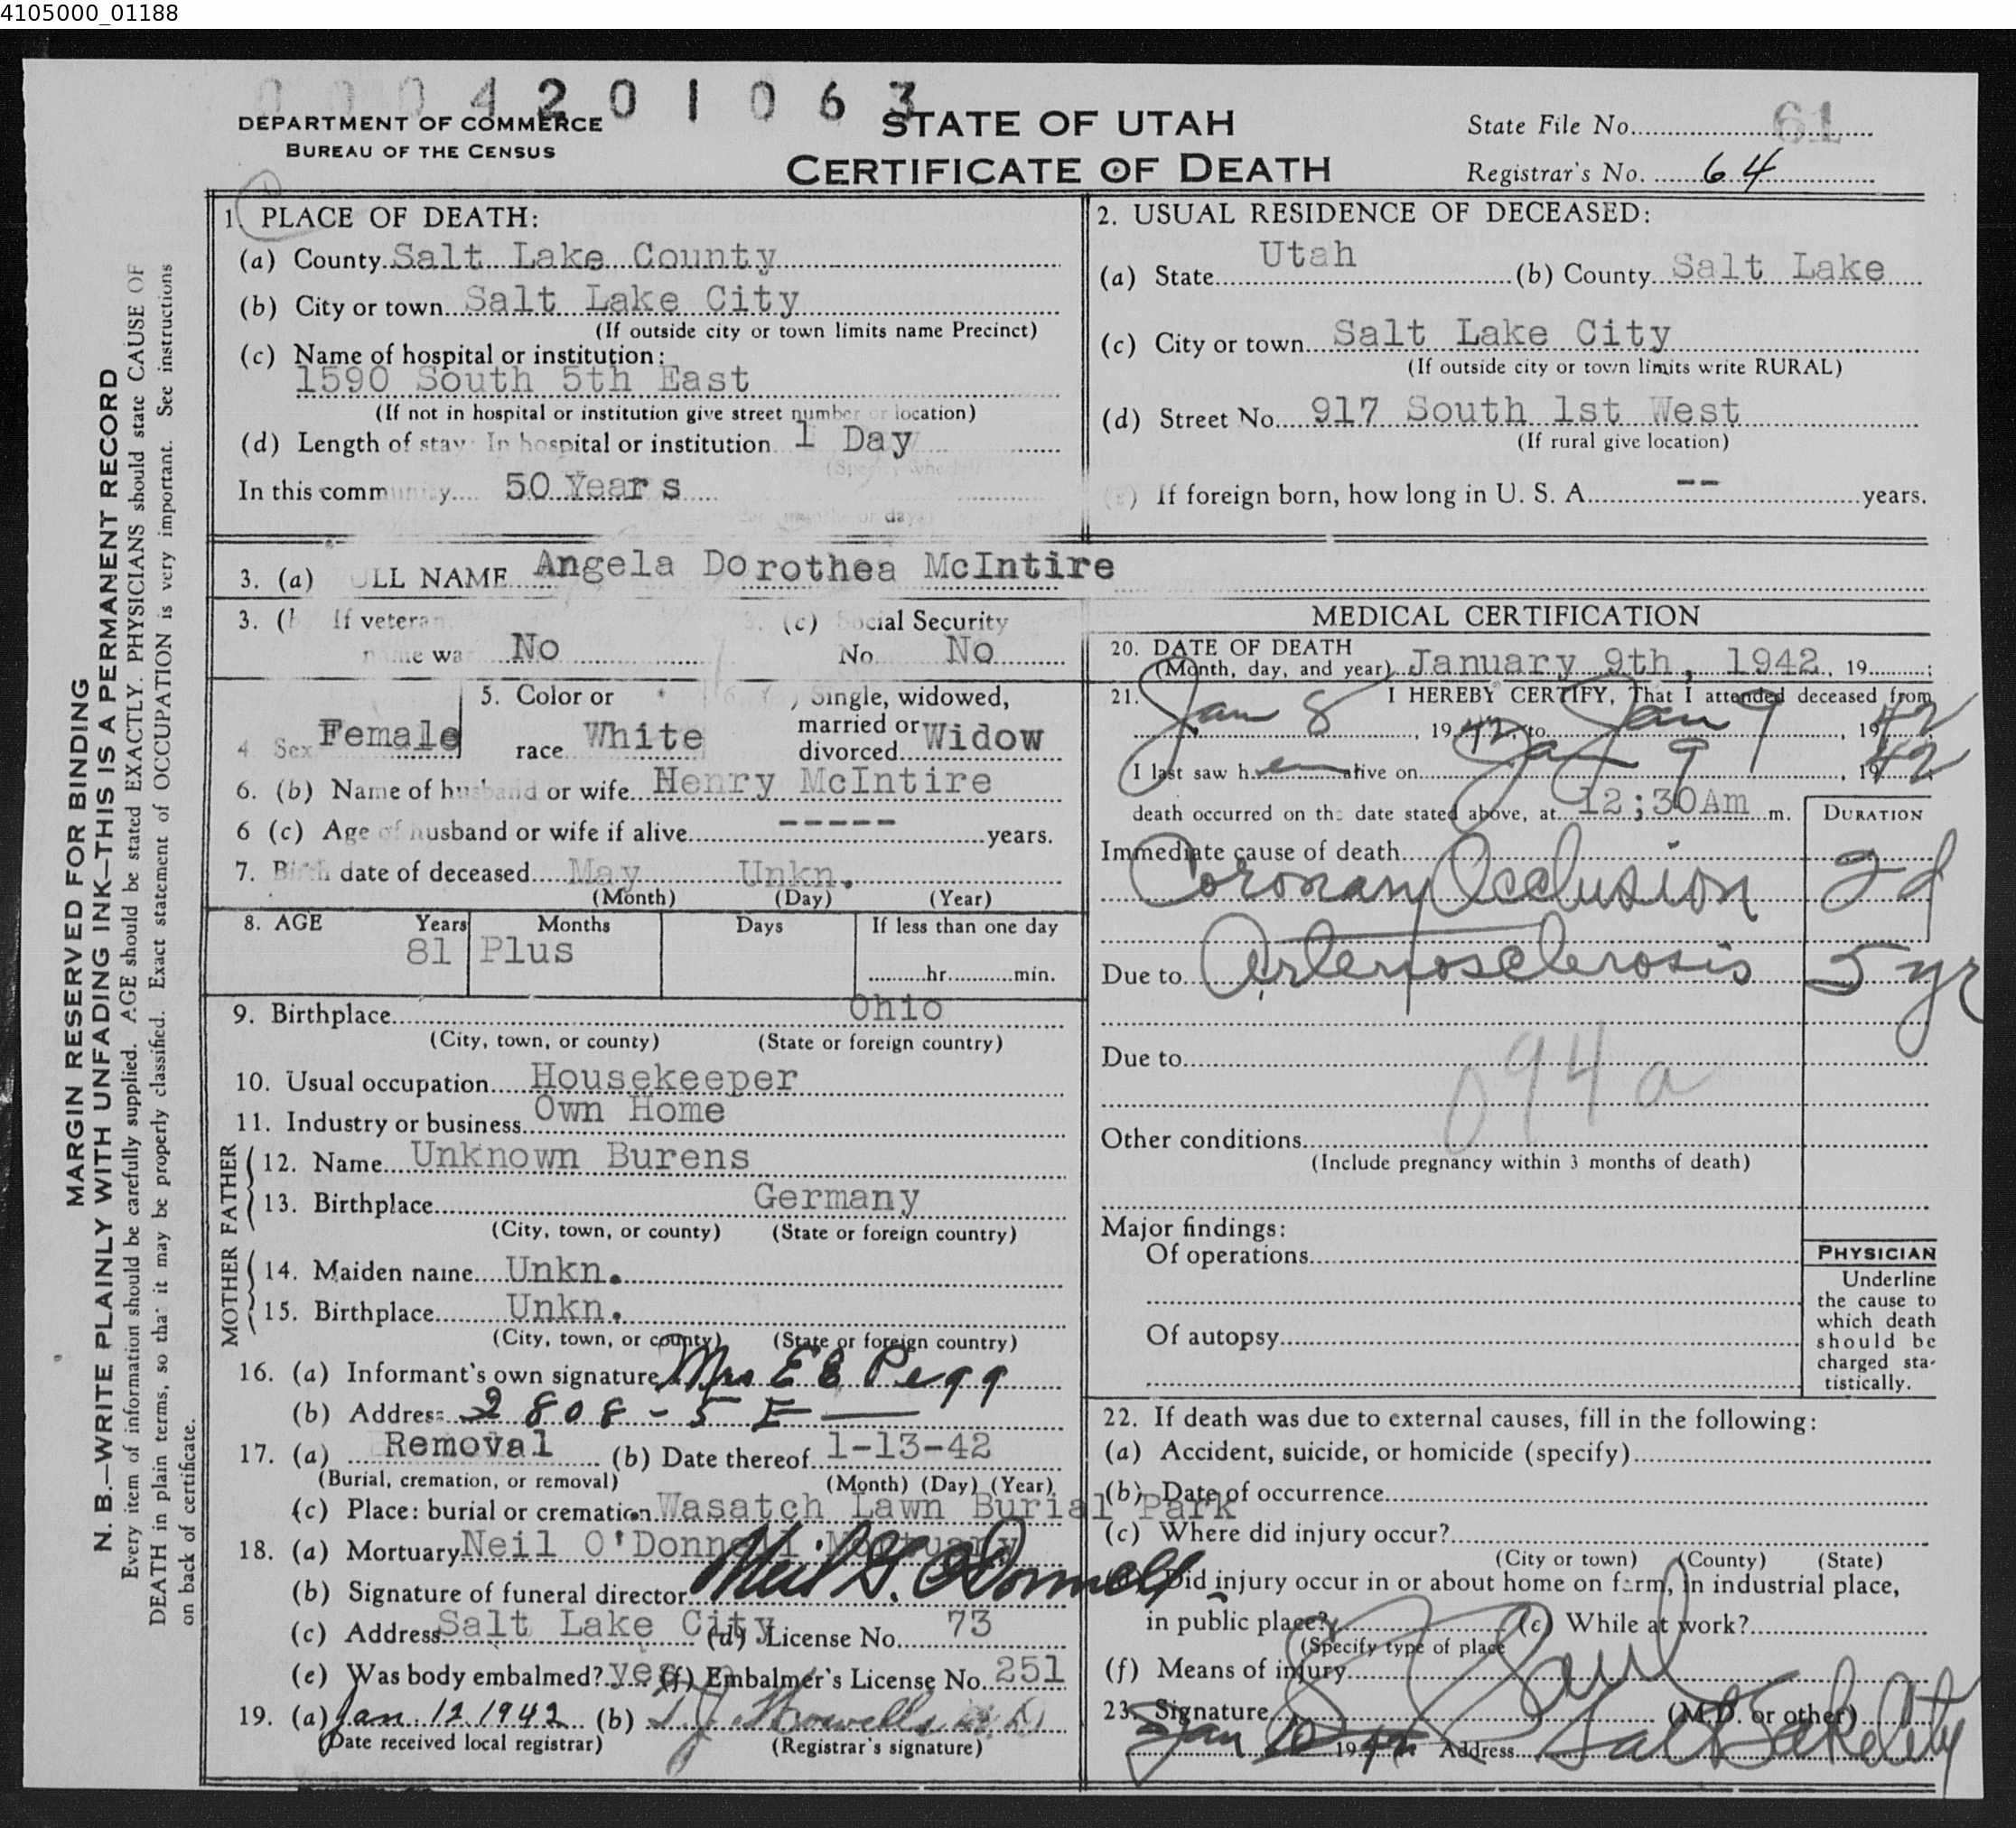 4105000_01188
0004201063
DEPARTMENT OF COMMERCE
BUREAU OF THE CENSUS
STATE OF UTAH
CERTIFICATE OF DEATH
State File No. 61
Registrar's No. 64
MARGIN RESERVED FOR BINDING
N. B.—WRITE PLAINLY WITH UNFADING INK—THIS IS A PERMANENT RECORD
Every item of information should be carefully supplied. AGE should be stated EXACTLY. PHYSICIANS should state CAUSE OF
DEATH in plain terms, so that it may be properly classified. Exact statement of OCCUPATION is very important. See instructions
on back of certificate.
1. PLACE OF DEATH:
(a) County Salt Lake County
(b) City or town Salt Lake City
(If outside city or town limits name Precinct)
(c) Name of hospital or institution:
1590 South 5th East
(If not in hospital or institution give street number or location)
(d) Length of stay: In hospital or institution 1 Day
In this community 50 Years
2. USUAL RESIDENCE OF DECEASED:
(a) State Utah (b) County Salt Lake
(c) City or town Salt Lake City
(If outside city or town limits write RURAL)
(d) Street No. 917 South 1st West
(If rural give location)
(e) If foreign born, how long in U. S. A. -- years.
3. (a) FULL NAME Angela Dorothea McIntire
3. (b) If veteran, 3. (c) Social Security
name war No No. No
4. Sex Female
5. Color or
race White
6. (a) Single, widowed,
married or
divorced Widow
6. (b) Name of husband or wife Henry McIntire
6 (c) Age of husband or wife if alive ----- years.
7. Birth date of deceased May Unkn.
(Month) (Day) (Year)
8. AGE Years Months Days If less than one day
81 Plus
hr. min.
9. Birthplace Ohio
(City, town, or county) (State or foreign country)
10. Usual occupation Housekeeper
11. Industry or business Own Home
FATHER
12. Name Unknown Burens
13. Birthplace Germany
(City, town, or county) (State or foreign country)
MOTHER
14. Maiden name Unkn.
15. Birthplace Unkn.
(City, town, or county) (State or foreign country)
16. (a) Informant's own signature Mrs E E Pegg
(b) Address 2808 - 5 E —
17. (a) Removal (b) Date thereof 1-13-42
(Burial, cremation, or removal) (Month) (Day) (Year)
(c) Place: burial or cremation Wasatch Lawn Burial Park
18. (a) Mortuary Neil O'Donnell Mortuary
(b) Signature of funeral director Neil O'Donnell
(c) Address Salt Lake City (d) License No. 73
(e) Was body embalmed? yes (f) Embalmer's License No. 251
19. (a) Jan. 12 1942 (b) T. J. Howells M D
(Date received local registrar) (Registrar's signature)
MEDICAL CERTIFICATION
20. DATE OF DEATH
(Month, day, and year) January 9th, 1942, 19 ;
21. I HEREBY CERTIFY, That I attended deceased from
Jan 8, 1942, to Jan 9, 1942
I last saw her alive on Jan 9, 1942;
death occurred on the date stated above, at 12;30Am m.
DURATION
Immediate cause of death
Coronary Occlusion 2 d
Due to Arteriosclerosis 5 yr
Due to
094a
Other conditions
(Include pregnancy within 3 months of death)
Major findings:
Of operations
Of autopsy
PHYSICIAN
Underline
the cause to
which death
should be
charged sta-
tistically.
22. If death was due to external causes, fill in the following:
(a) Accident, suicide, or homicide (specify)
(b) Date of occurrence
(c) Where did injury occur?
(City or town) (County) (State)
Did injury occur in or about home on farm, in industrial place,
in public place? (e) While at work?
(Specify type of place
(f) Means of injury
23. Signature (M.D. or other)
Jan 10 1942 Address Salt Lake City